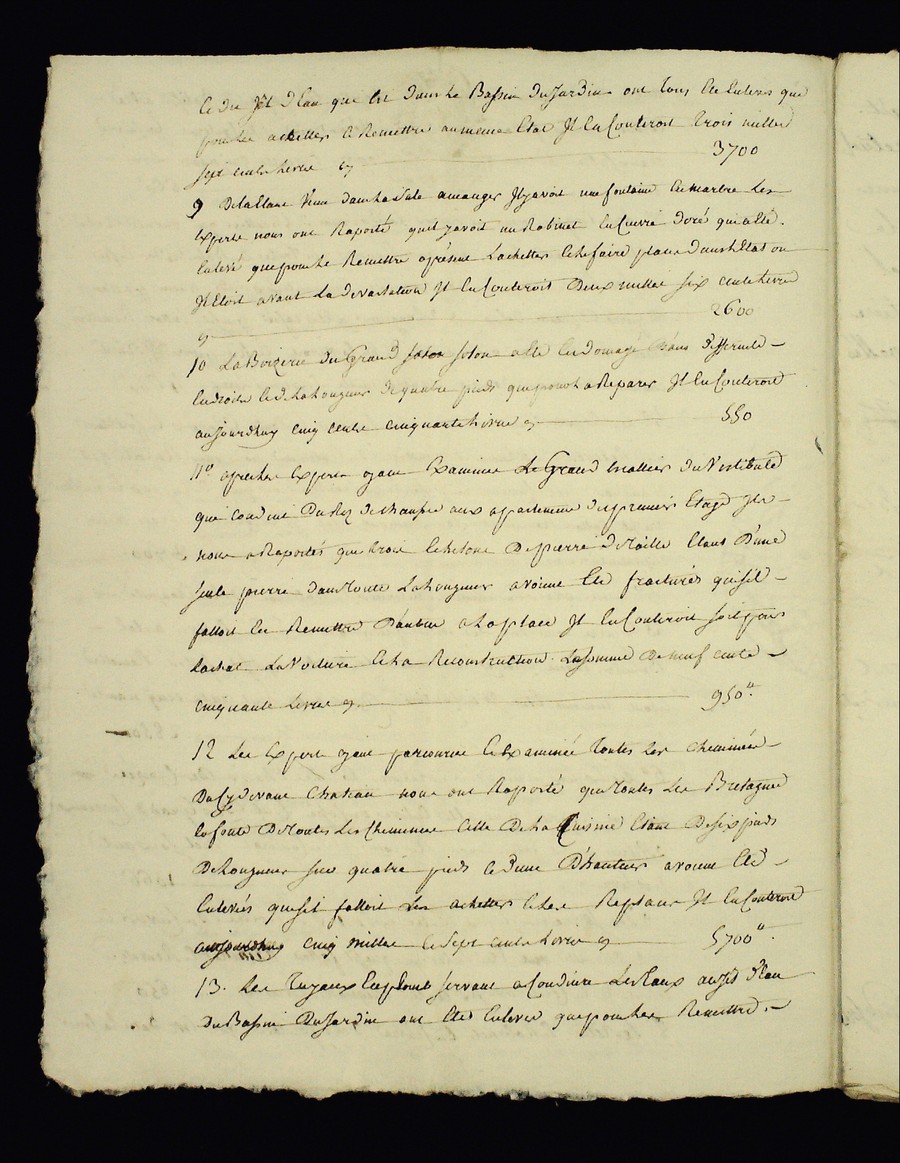 et du Jet d'Eau que est dans le Bassin du Jardin ont tous été Enleves que
pour les achetter et Remettre au meme Etat Jl En Couteroit trois milles
sept cents Livres cy 3700
9 De la Etant venu dans la Sale a manger Jl y avoit une fontaine En marbre les
Experts nous ont Raporté quil y avoit un Robinet En Cuivre doré qui a Eté
Enlevé que pour le Remettre a présent L'achetter et le faire placer dans l'Etat ou
Jl Etoit avant La devastation Jl En Couteroit Deux milles six cents Livres
cy 2600
10 La Boizerie du Grand salon a Eté Endomagé Dans differents
Endroits et de la Longueur de quatre pieds que pour la Reparer Jl En Couteroit
aujourdhuy cinq cents cinquante Livres cy 550
11° apres les Experts ayant Examiné Le Grand Escallier du Vestibule
que Conduit du Rez de chaussée aux apartements du premier Etage Jls
nous a Raportés que trois Echelons De pierre de taille Etant D'une
seule pierre dans toute La Longueur avoient Eté fracturés quil
falloit En Remettre D'autres a la place Jl En Couteroit soit pour
Lachat La Voiture et la Reconstruction La somme De neuf cents
cinquante Livres cy 950"
12 Les Experts ayant parcourus et Examinée toutes Les cheminées
Du Cydevant Chateau nous ont Raporté que toutes Les Bretagnes
En fonte De toutes Les Cheminées Celle De la Cuisine Etant De six pieds
De Longueur sur quatre pieds et Demi D'hauteur avoient Eté
Enlevés quil falloit Les achetter et les Replacer Jl En Couteroit
aujourdhuy cinq milles et Sept cents Livres cy 5700"
13. Les Tuyaux En plomb servant a Conduire Les Eaux au Jet d'Eau
Du Bassin Du Jardin ont Eté Enlevés que pour les Remettre